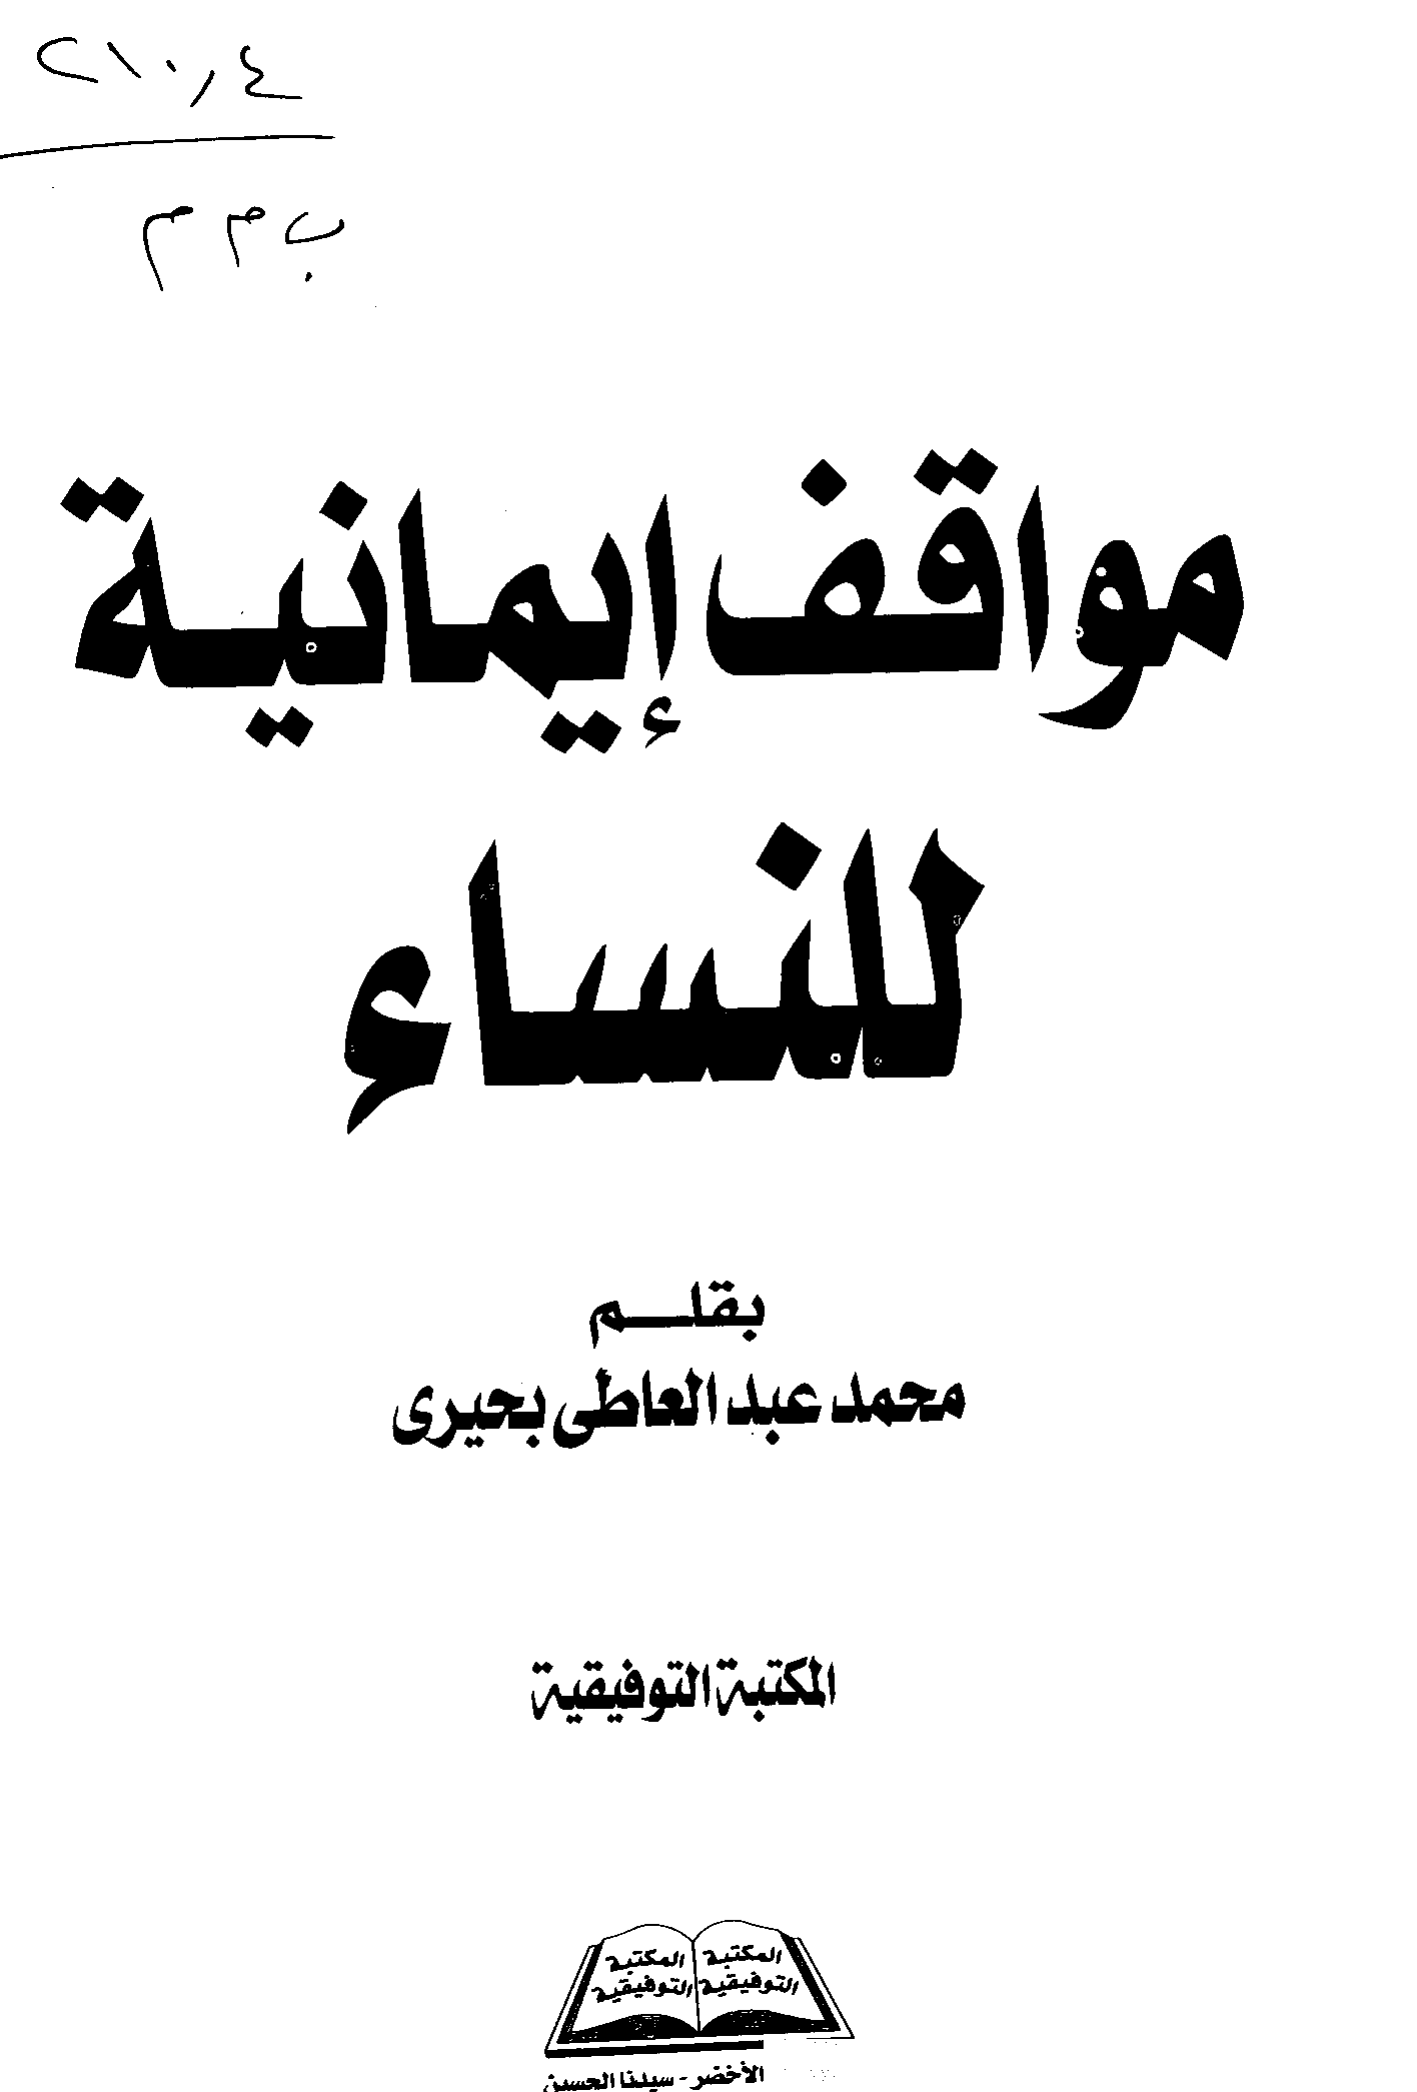 ٢١٠,٤
ب م م
مواقف إيمانية
للنساء
بقلم
محمد عبد العاطى بحيرى
المكتبة التوفيقية
المكتبة المكتبة
التوفيقية التوفيقية
الأخضر - سيدنا الحسين